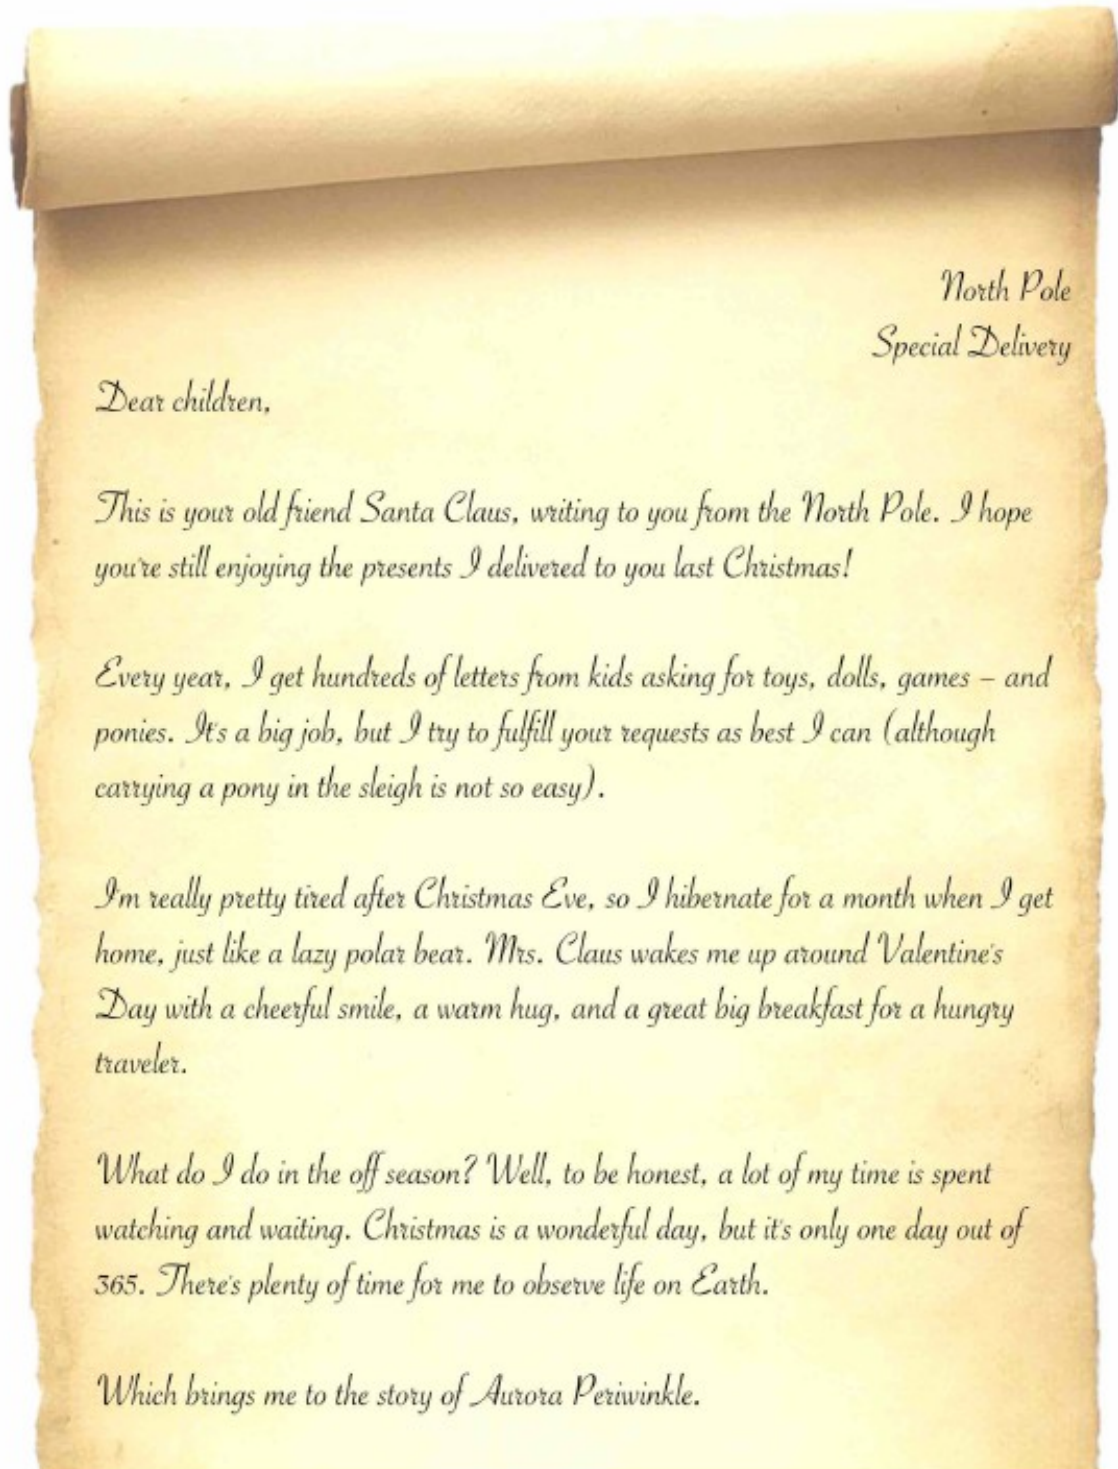 North Pole
Special Delivery
Dear children,
This is your old friend Santa Claus, writing to you from the North Pole. I hope
you're still enjoying the presents I delivered to you last Christmas!
Every year, I get hundreds of letters from kids asking for toys, dolls, games – and
ponies. It's a big job, but I try to fulfill your requests as best I can (although
carrying a pony in the sleigh is not so easy).
I'm really pretty tired after Christmas Eve, so I hibernate for a month when I get
home, just like a lazy polar bear. Mrs. Claus wakes me up around Valentine's
Day with a cheerful smile, a warm hug, and a great big breakfast for a hungry
traveler.
What do I do in the off season? Well, to be honest, a lot of my time is spent
watching and waiting. Christmas is a wonderful day, but it's only one day out of
365. There's plenty of time for me to observe life on Earth.
Which brings me to the story of Aurora Periwinkle.